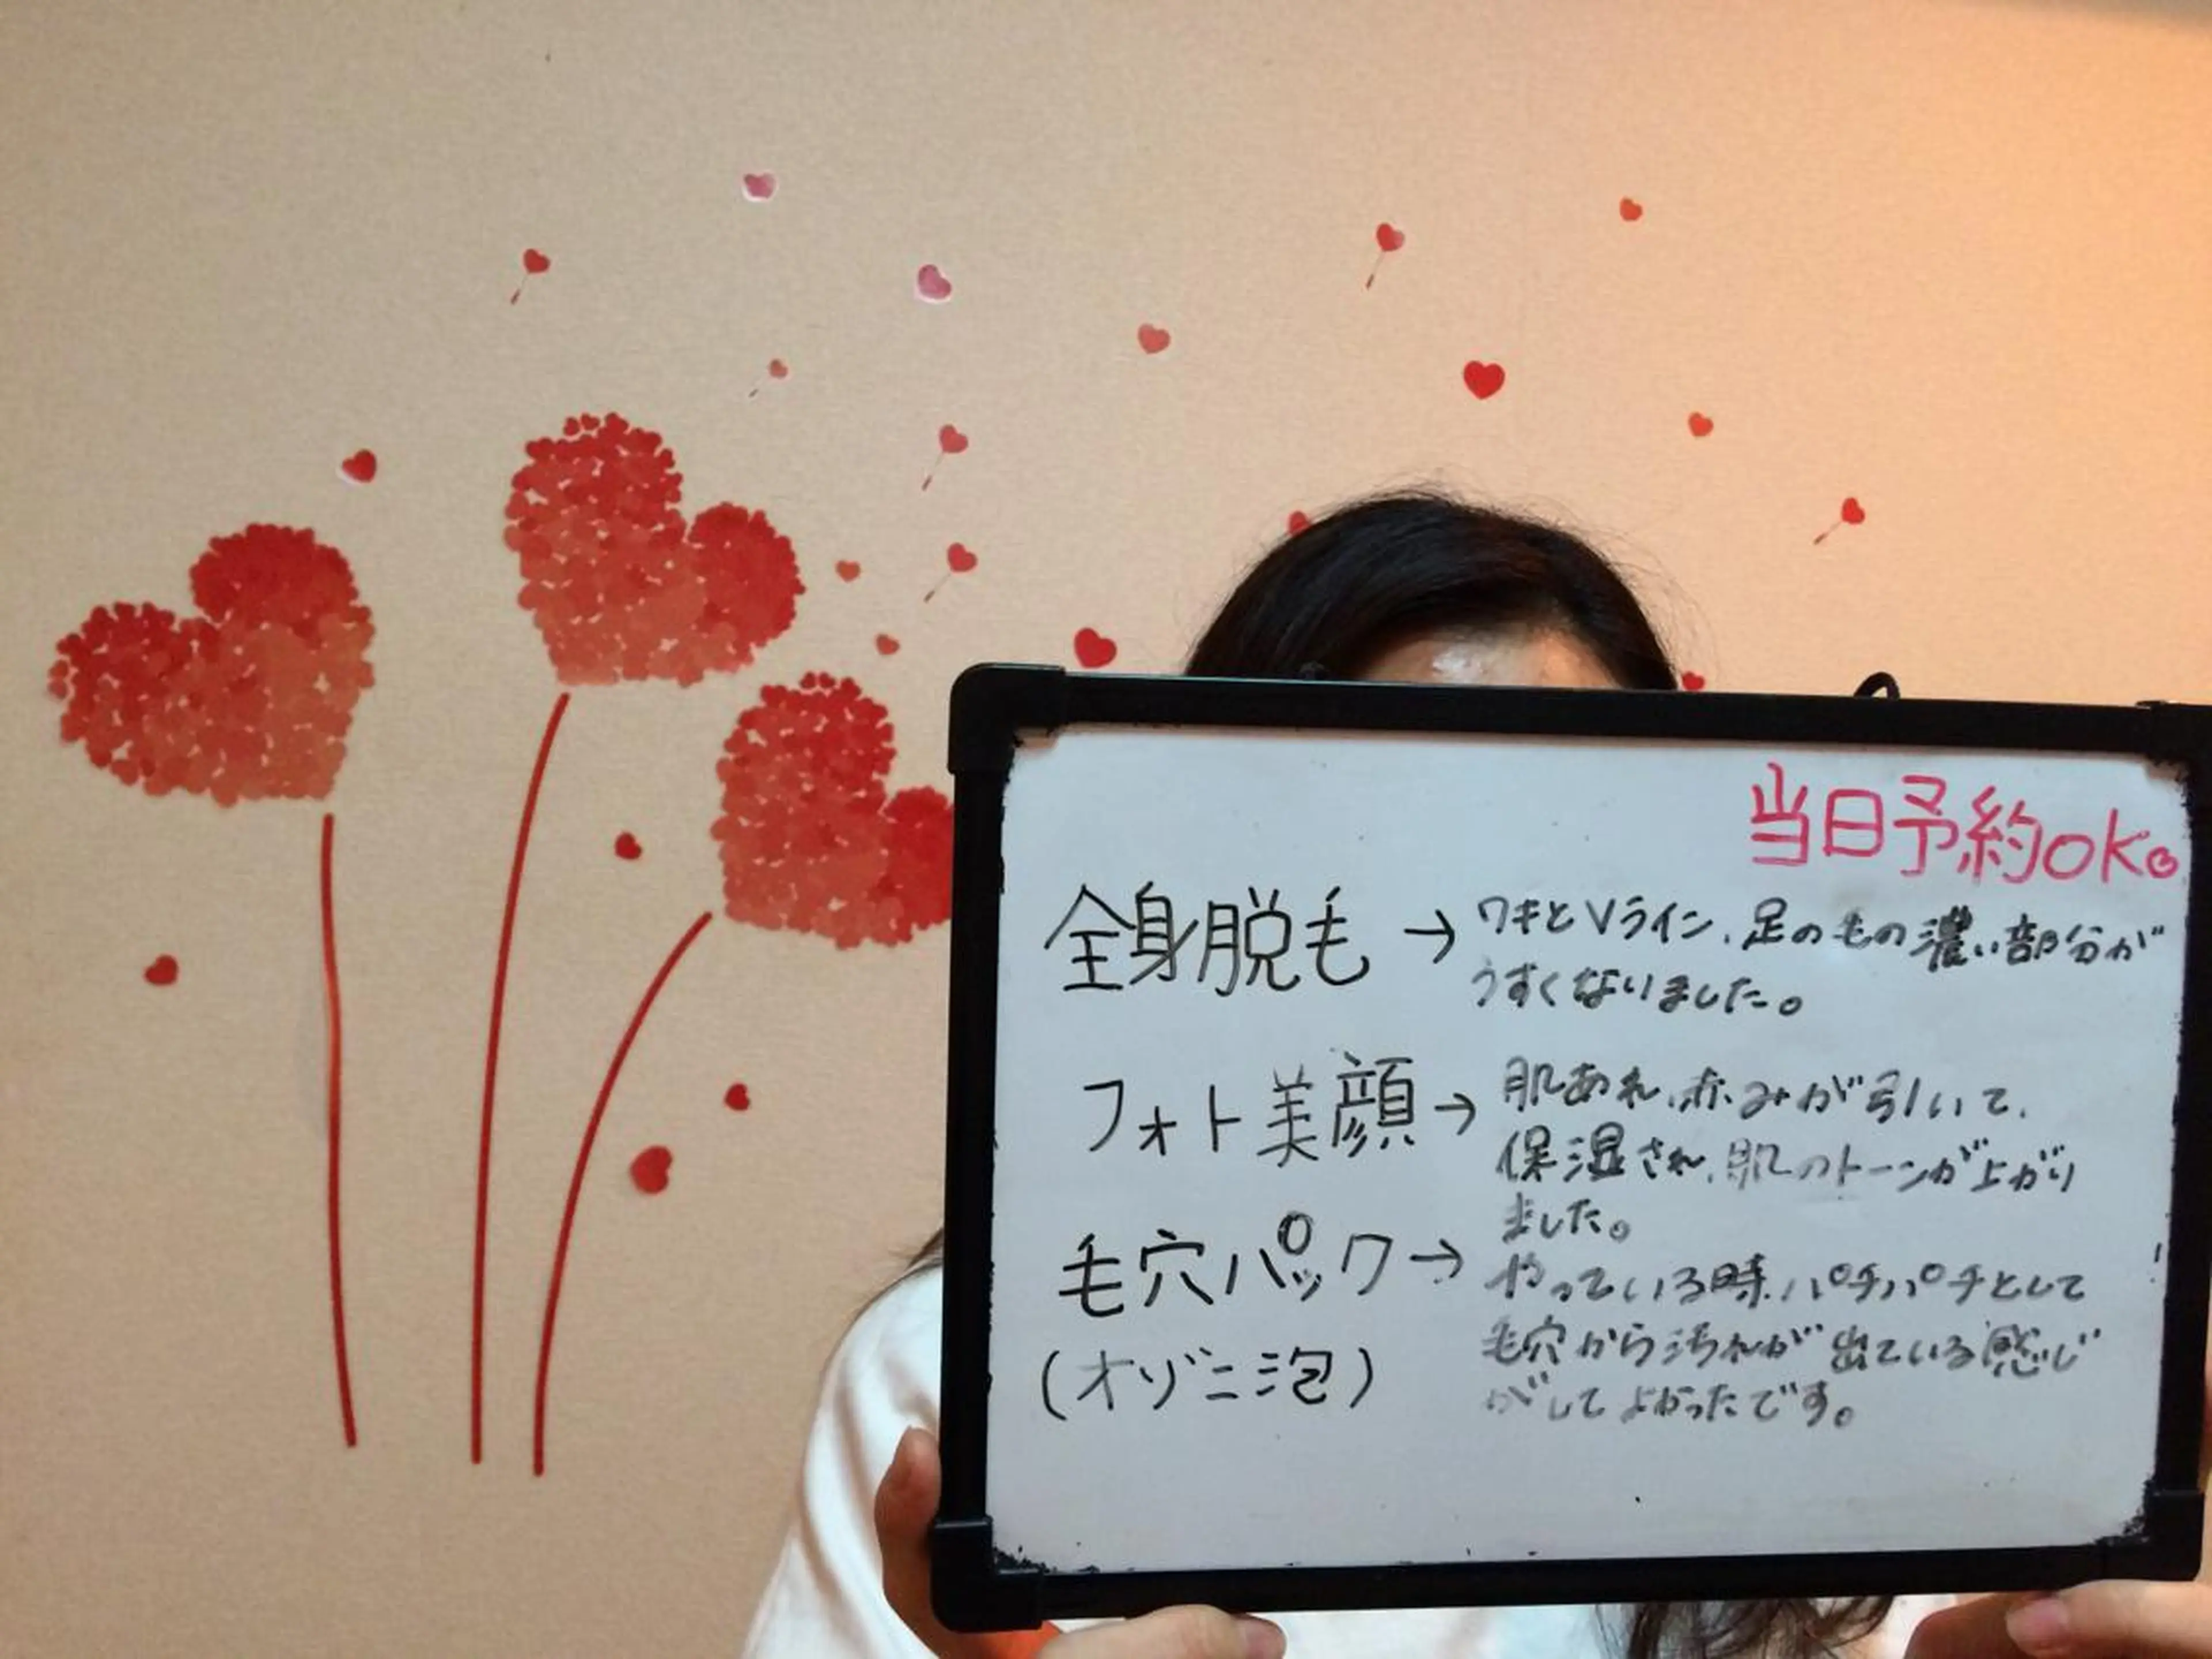 当日予約OK。
全身脱毛→ワキとVライン、足のもの濃い部分が
うすくなりました。
フォト美顔→肌あれ、赤みが引いて、
保湿され、肌のトーンが上がり
ました。
毛穴パック→やっている時、パチパチとして
(オゾニ泡)毛穴から汚れが出ている感じ
がしてよかったです。